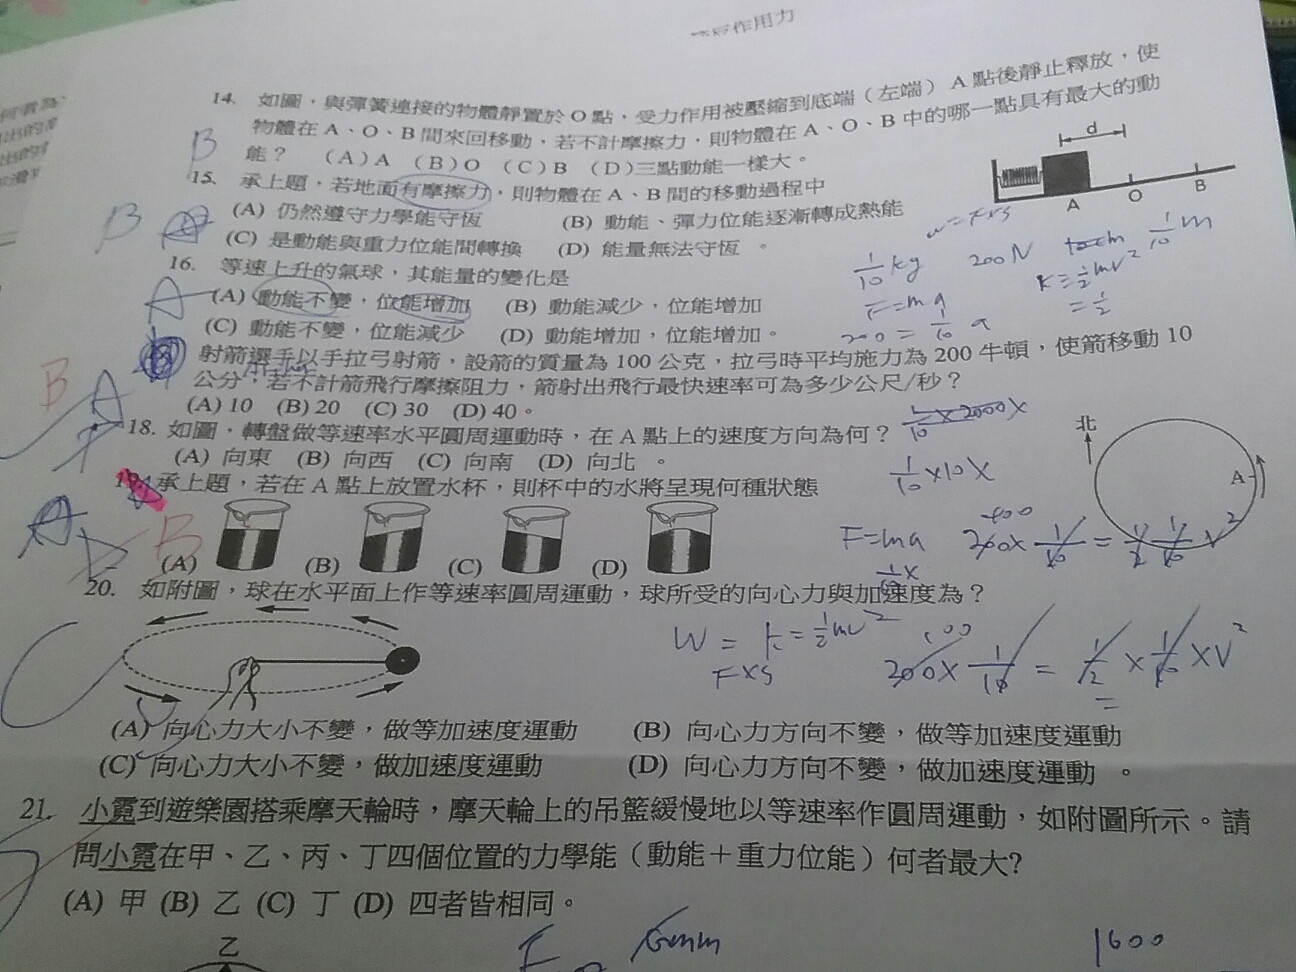 反作用力
14. 如圖，與彈簧連接的物體靜置於O點，受力作用被壓縮到底端（左端）A點後靜止釋放，使
物體在A、O、B間來回移動，若不計摩擦力，則物體在A、O、B中的哪一點具有最大的動
能？ (A) A (B) O (C) B (D) 三點動能一樣大。
B
d
A O B
15. 承上題，若地面有摩擦力，則物體在A、B間的移動過程中
(A) 仍然遵守力學能守恆 (B) 動能、彈力位能逐漸轉成熱能
(C) 是動能與重力位能間轉換 (D) 能量無法守恆。
B
16. 等速上升的氣球，其能量的變化是
(A) 動能不變，位能增加 (B) 動能減少，位能增加
(C) 動能不變，位能減少 (D) 動能增加，位能增加。
A
W=F×S
1/10 kg 200N 1/10 m
F=ma K=½mv²
200=1/10 a =½
射箭選手以手拉弓射箭，設箭的質量為100公克，拉弓時平均施力為200牛頓，使箭移動10
公分，若不計箭飛行摩擦阻力，箭射出飛行最快速率可為多少公尺/秒？
(A) 10 (B) 20 (C) 30 (D) 40。
B
18. 如圖，轉盤做等速率水平圓周運動時，在A點上的速度方向為何？
(A) 向東 (B) 向西 (C) 向南 (D) 向北。
A
北
A
1/10×2000×
1/10×10×
19. 承上題，若在A點上放置水杯，則杯中的水將呈現何種狀態
(A) (B) (C) (D)
A
B
F=ma 200×1/10=1/2 1/10 v²
20. 如附圖，球在水平面上作等速率圓周運動，球所受的向心力與加速度為？
W=K=½mv²
F×S
100
200×1/10=1/2×1/10×V²
(A) 向心力大小不變，做等加速度運動 (B) 向心力方向不變，做等加速度運動
(C) 向心力大小不變，做加速度運動 (D) 向心力方向不變，做加速度運動。
C
21. 小霓到遊樂園搭乘摩天輪時，摩天輪上的吊籃緩慢地以等速率作圓周運動，如附圖所示。請
問小霓在甲、乙、丙、丁四個位置的力學能（動能＋重力位能）何者最大?
(A) 甲 (B) 乙 (C) 丁 (D) 四者皆相同。
乙
1600